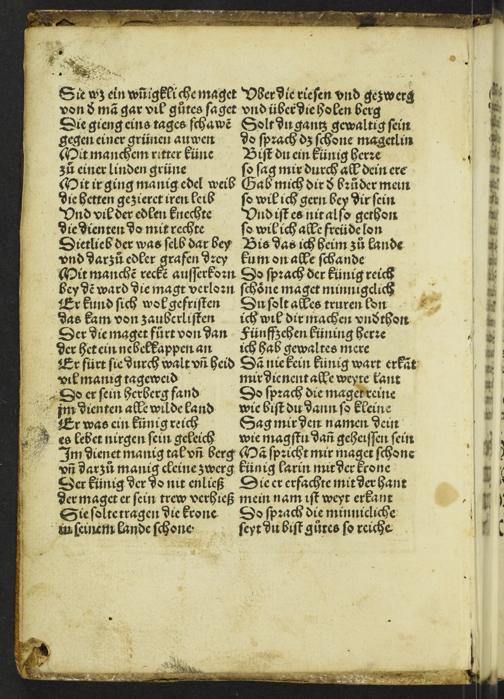 Sie wz ein wũigkliche maget
von d mã gar vil gůtes saget
Die gieng eins tages schawẽ
gegen einer grünen auwen
Mit manchem ritter küne
zů einer linden grüne
Mit ir ging manig edel weib
die hetten gezieret iren leib
Vnd vil der edlen knechte
die dienten do mit rechte
Dietlieb der was selb dar bey
vnd darzů edler grafen drey
Mit manchẽ reckẽ ausserkorn
bey dẽ ward die magt verlorn
Er kund sich wol gefristen
das kam von zauberlisten
Der die maget fürt von dan
der het ein nebelkappen an
Er fürt sie durch walt vñ heid
vil manig tageweid
Do er sein herberg fand
jm dienten alle wilde land
Er was ein künig reich
es lebet nirgen sein geleich
Im dienet manig tal vñ berg
vñ darzů manig cleine zwerg
Der künig der do nit enließ
der maget er sein trew verhieß
Sie solte tragen die krone
in seinem lande schone
Vber die riesen vnd gezwerg
vnd über die holen berg
Solt du gantz gewaltig sein
do sprach dz schone magetlin
Bist du ein künig herre
so sag mir durch all dein ere
Gab mich dir d brůder mein
so wil ich gern bey dir sein
Vnd ist es nit also gethon
so wil ich alle freüde lon
Bis das ich heim zů lande
kum on alle schande
Do sprach der künig reich
schöne maget minnigelich
Du solt alles truren lon
ich wil dir machen vndthon
Fünffzehen küning herre
ich hab gewaltes mere
Dã nie kein künig wart erkãt
mir dienent alle weyte lant
Do sprach die maget reine
wie bist du dann so kleine
Sag mir den namen dein
wie magstu dañ geheissen sein
Mã spricht mir maget schone
künig larin mit der krone
Die er erfachte mit der hant
mein nam ist weyt erkant
Do sprach die minnicliche
seyt du bist gůtes so reiche